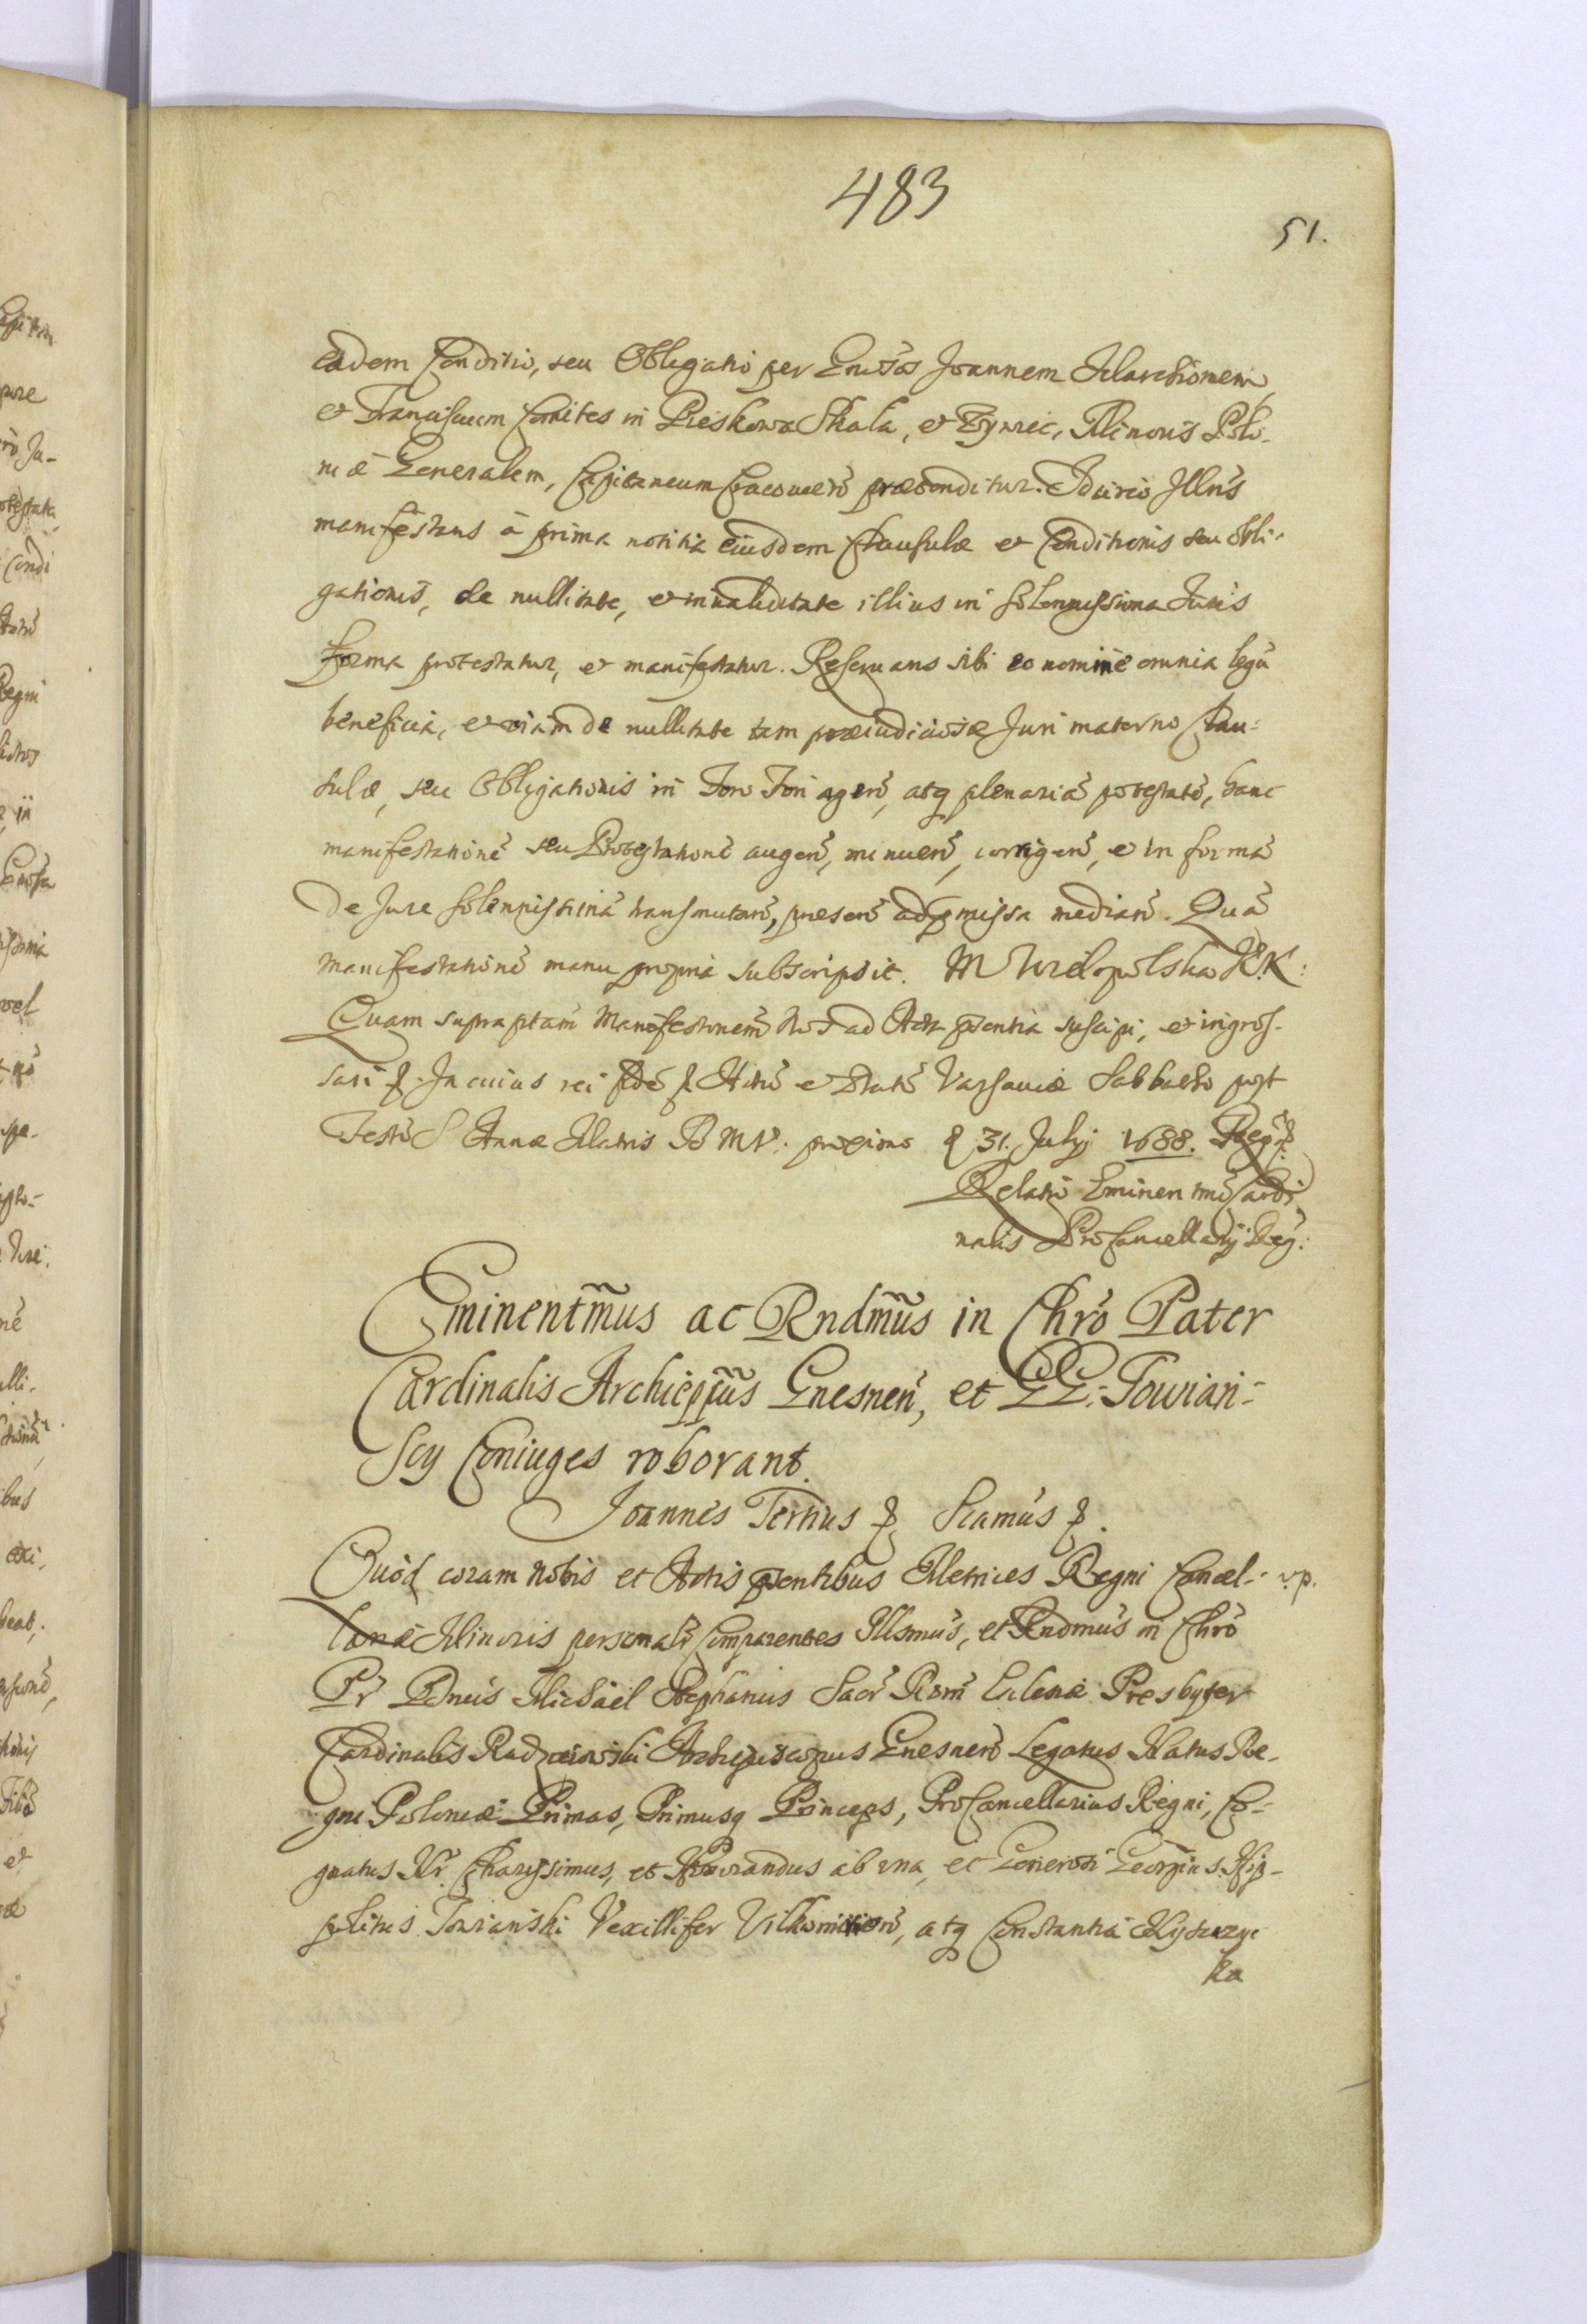 483
51.
eadem Conditio, seu Obligatio per Gnosos Joannem Marchionem
et Franciscum Comites in Pieskowa Skala, et Zywiec, Minoris Polo-
niæ Generalem, Capitaneum Cracovień prætenditur. Idcirco Illris
manifestans à prima notitia eiusdem Clausulæ et Conditionis seu Obli-
gationis, de nullitate, et invaliditate illius in solennissima Juris
forma protestatur, et manifestatur. Reservans sibi eo nomine omnia legũ
beneficia, et viam de nullitate tam præiudiciosæ Juri materno Clau-
sulæ, seu Obligationis in Foro Fori agen̄, atq plenariã potestatẽ, hanc
manifestationẽ seu Protestationẽ augen̄, minuen̄, corrigen̄, et in formã
de Jure solennissimã transmutan̄, presen̄ ad præmissa median̄. Quã
manifestationẽ manu propria subscripsit. M Wielopolska K K:
Quam supra ptam Manifestonem Nos ad Acta pñtia suscipi, et ingros-
sari &. In cuius rei fidẽ & Actũ et Datũ Varsaviæ Sabbatho post
Festũ S Annæ Matris B M V. proximo & 31. Julij 1688. Regn̄ &
Relatio Eminentmi Cardi
nalis ProCancellarij Reg:
Eminentm̃us ac Rndm̃us in Chrõ Pater
Cardinalis Archieppũs Gnesnen̄, et GG: Towian-
scy Coniuges roborant.
Joannes Tertius & Scamũs &.
Quod coram Nobis et Actis pñtibus Metrices Regni Cancel- v.p.
lariæ Minoris personalr̃ Comparentes Illsmũs, et Rndmũs in Chrõ
Pr̃ Dnũs Michael Stephanus Sacr̃ Rom̃ Eclesiæ Presbyter
Cardinalis Radzieiowski Archiepiscopus Gnesnen̄ Legatus Natus Re-
gni Poloniæ Primas, Primusq Princeps, ProCancellarius Regni, Co-
gnatus Nr̃ Charissimus, et Honorandus ab una, et Generosi Georgius Hip-
politus Towianski Vexillifer Vilkomirien̄, atq Constantia Niszczyc
ka